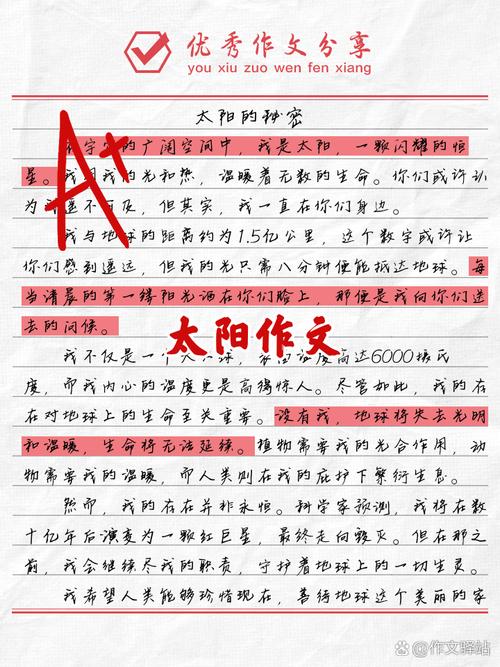 优秀作文分享
you xiu zuo wen fen xiang
太阳的秘密
的广阔空间中，我是太阳，一颗闪耀的恒
星。我用我的光和热，温暖着无数的生命。你们或许认
为遥不可及，但其实，我一直在你们身边。
我与地球的距离约为1.5亿公里，这个数字或许让
你们感到遥远，但我的光只需八分钟便能抵达地球。每
当清晨的第一缕阳光洒在你们脸上，那便是我向你们送
去的问候。
太阳作文
我不仅是一个火球，高达6000摄氏
度，而我内心的温度更是高得惊人。尽管如此，我的存
在对地球上的生命至关重要。没有我，地球将失去光明
和温暖，生命将无法延续。植物需要我的光合作用，动
物需要我的温暖，而人类则在我的庇护下繁衍生息。
然而，我的存在并非永恒。科学家预测，我将在数
十亿年后演变为一颗红巨星，最终走向毁灭。但在那之
前，我会继续尽我的职责，守护着地球上的一切生灵。
我希望人类能够珍惜现在，善待地球这个美丽的家
A+
@作文驿站